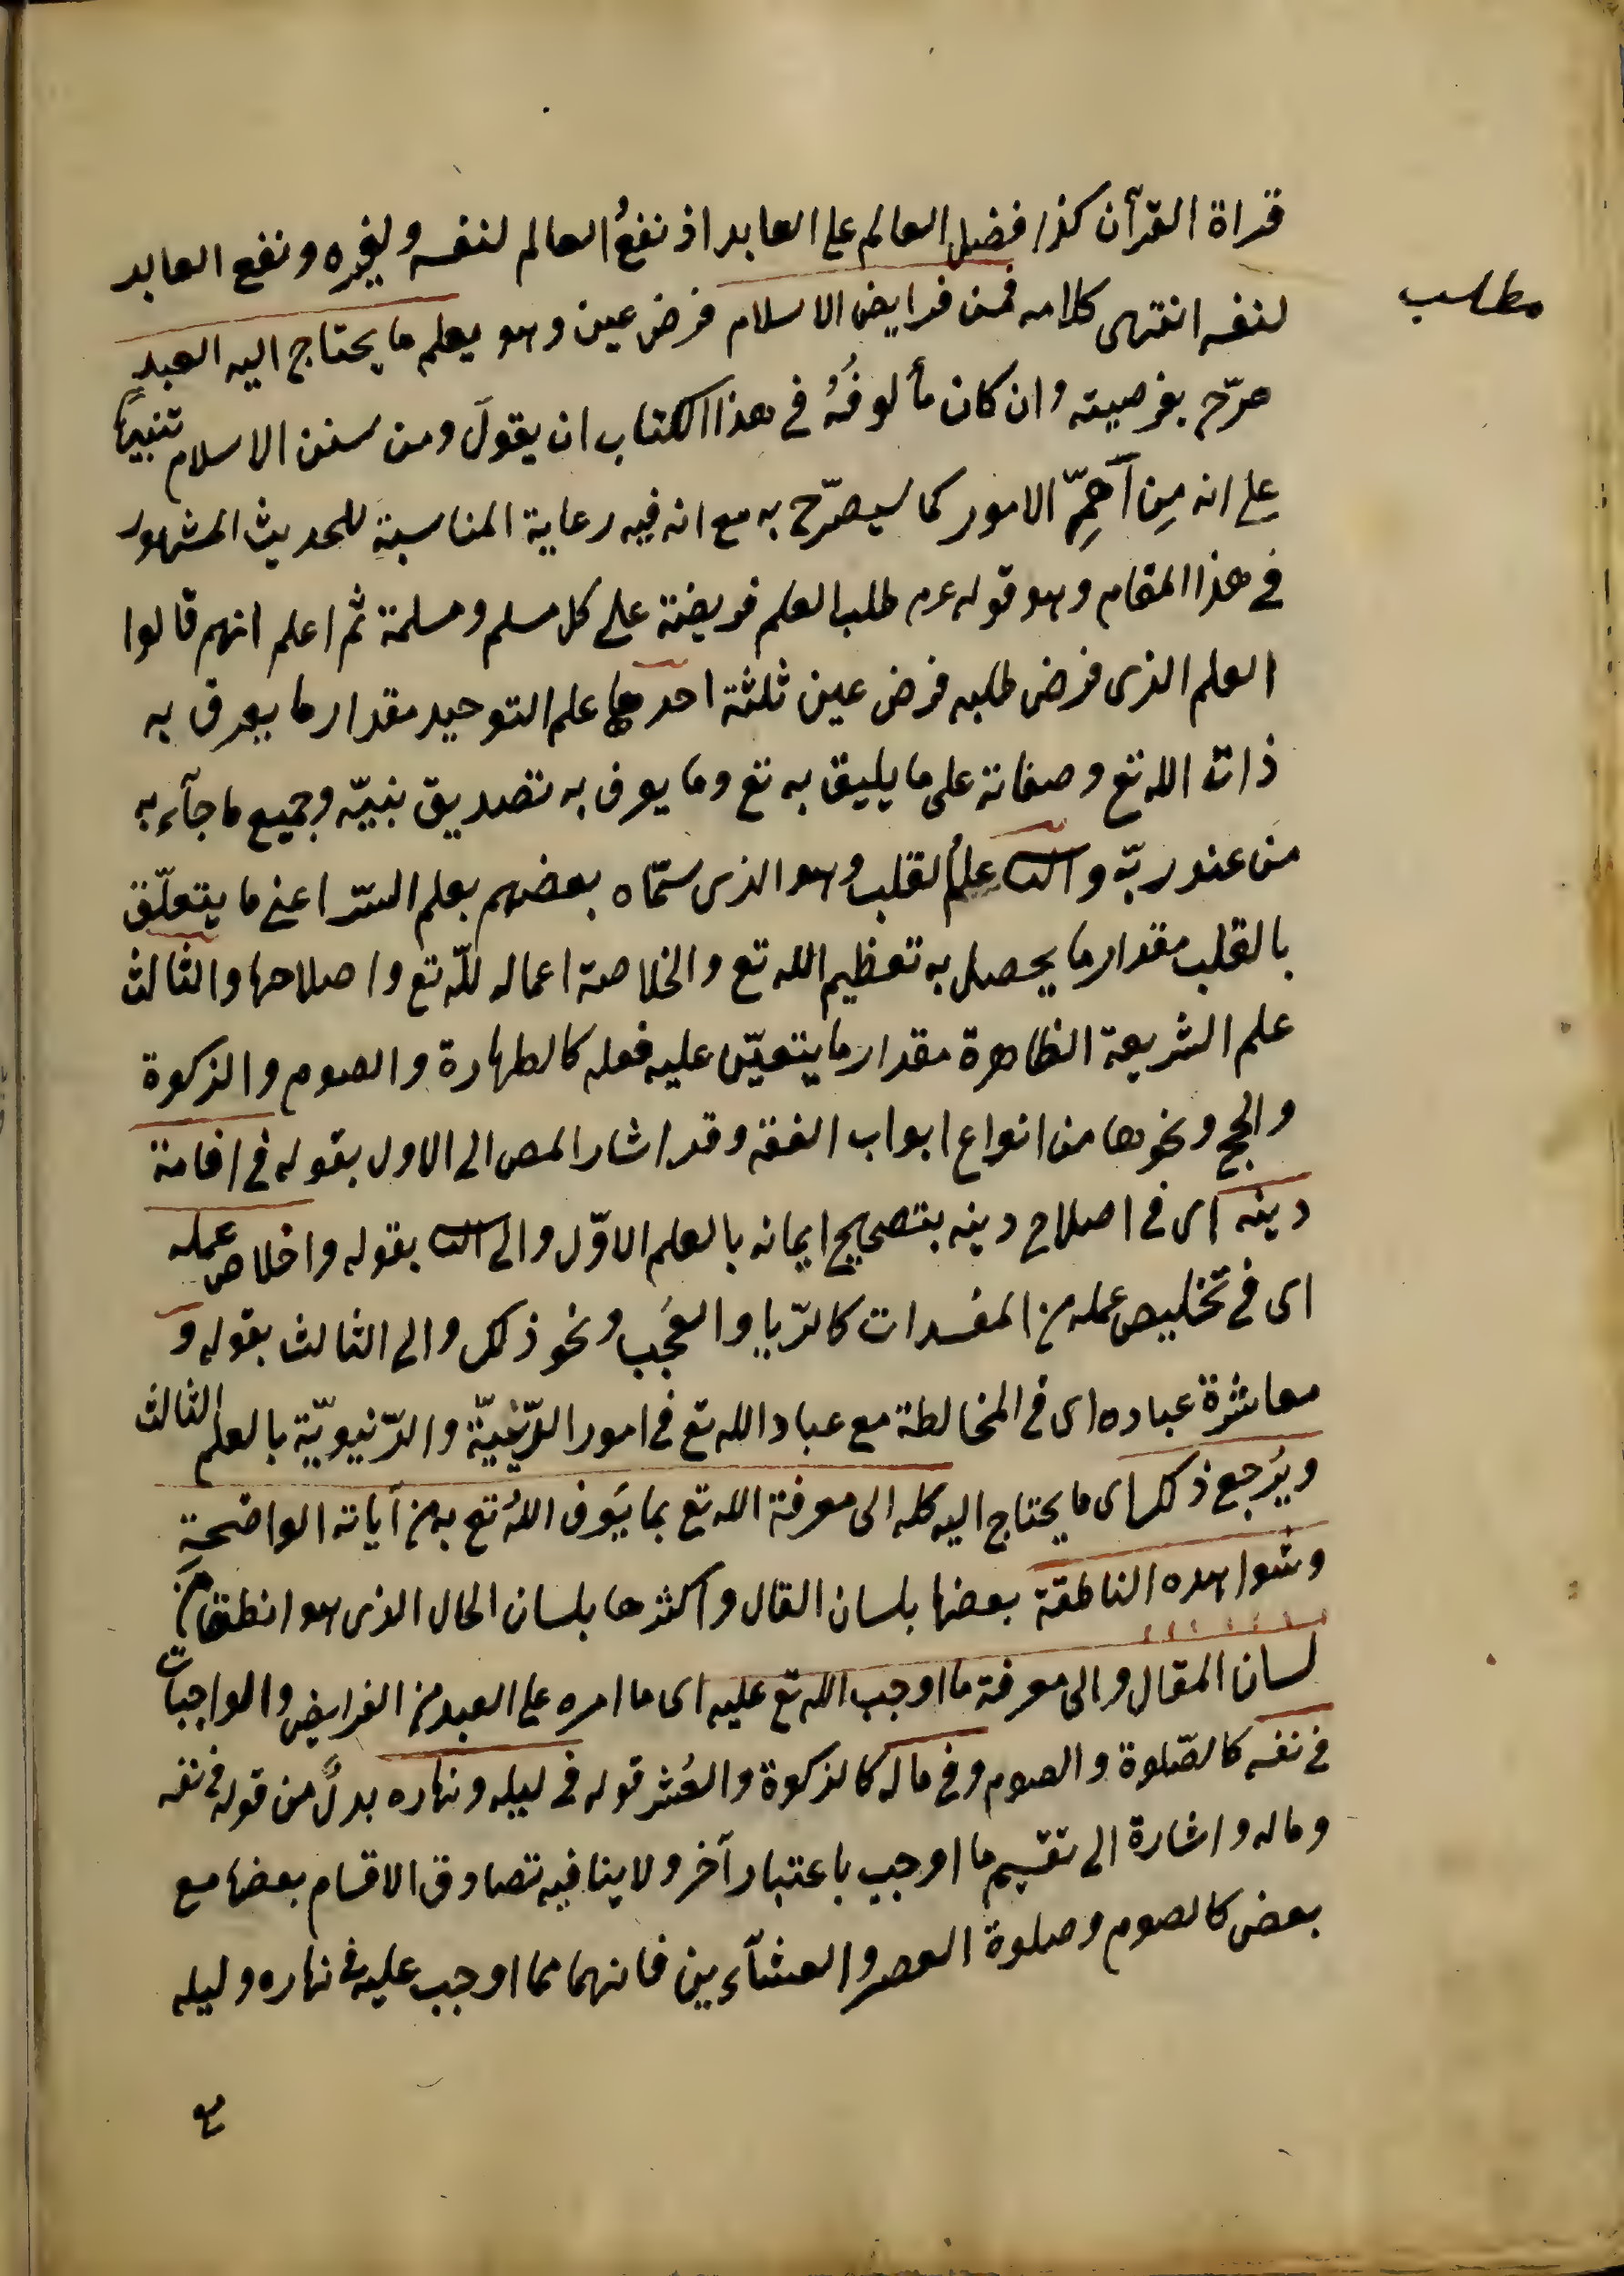 قراة القرآن كذا فضل العالم على العابد اذ نفعُ العالم لنفسه ولغيره ونفع العابد
مطلب
لنفسه انتهى كلامه فمن فرايض الاسلام فرض عين وهو يعلم ما يحتاج اليه العبد
صرّح بفرضيته وان كان مألوفُهُ في هذا الكتاب ان يقولَ ومن سنن الاسلام تنبيهاً
على انه مِن اَهَمِّ الامور كما سيصرّح به مع انه فيه رعاية المناسبة للحديث المشهور
في هذا المقام وهو قوله عم طلب العلم فريضة على كل مسلم ومسلمة ثم اعلم انهم قالوا
العلم الذى فرض طلبه فرض عين ثلثة احدها علم التوحيد مقدار ما يعرف به
ذات الله تع وصفاته على ما يليق به تع وما يعرف به تصديق نبيّه وجميع ما جآء به
من عند ربّه والثا علمُ القلب وهو الذى سمّاه بعضهم بعلم السّر اعنى ما يتعلّق
بالقلب مقدار ما يحصل به تعظيم الله تع والخلاصة اعماله للّه تع واصلاحها والثالث
علم الشريعة الظاهرة مقدار ما يتعيّن عليه فعله كالطهارة والصوم والزكوة
والحج ونحوها من انواع ابواب الفقه وقد اشار المص الى الاول بقوله فى اقامة
دينه اى فى اصلاح دينه بتصحيح ايمانه بالعلم الاوّل والى الثا بقوله واخلاص عمله
اى فى تخليص عمله من المفسدات كالرّيا والعُجب ونحو ذلك والى الثالث بقوله و
معاشرة عباده اى فى المخالطة مع عباد الله تع فى امور الدّينيّة والدّنيويّة بالعلم الثالث
ويُرجع ذلك اى ما يحتاج اليه كله الى معرفة الله تع بما يَعرف اللهُ تع به من آياته الواضحةِ
وشواهده الناطقة بعضها بلسان القال واكثرها بلسان الحال الذى هو انطق من
لسان المقال والى معرفة ما اوجب الله تع عليه اى ما امره على العبد من الفرايض والواجبات
فى نفسه كالصّلوة والصوم وفى ماله كالزكوة والعُشر قوله فى ليله ونهاره بدلٌ من قوله فى نفسه
وماله واشارة الى تقسيم ما اوجب باعتبار آخر ولا ينافيه تصادق الاقسام بعضها مع
بعض كالصوم وصلوة العصر والعشآءين فانهما مما اوجب عليه فى نهاره وليله
مع